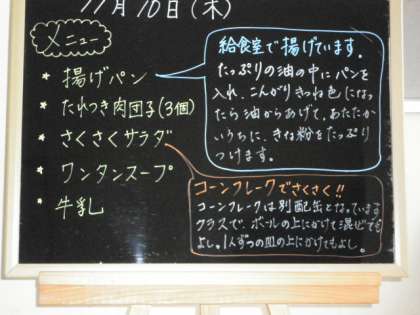 11月16日(木)
メニュー
* 揚げパン
* たれつき肉団子(3個)
* さくさくサラダ
* ワンタンスープ
* 牛乳
給食室で揚げています。
たっぷりの油の中にパンを
入れ、こんがりきつね色になっ
たら油からあげて、あたたか
いうちに、きな粉をたっぷり
つけます。
コーンフレークでさくさく!!
コーンフレークは別配缶となっています
クラスで、ボールの上にかけて混ぜても
よし。1人ずつの皿の上にかけてもよし。